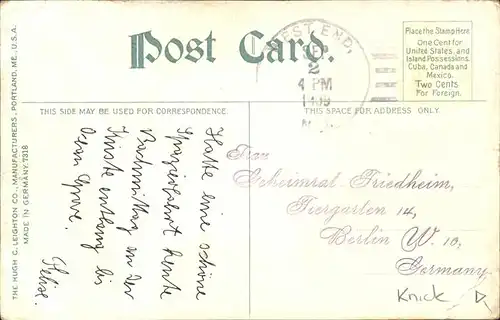 Post Card.
WEST END,
SEP
2
4 PM
1909
Place the Stamp Here
One Cent for
United States, and
Island Possessions
Cuba, Canada and
Mexico.
Two Cents
For Foreign.
THIS SIDE MAY BE USED FOR CORRESPONDENCE.
THIS SPACE FOR ADDRESS ONLY.
THE HUGH C. LEIGHTON CO., MANUFACTURERS, PORTLAND, ME., U.S.A.
MADE IN GERMANY. 7318
Hatte eine schöne
Spazierfahrt heute
Nachmittag an der
Küste entlang bis
Ocean Grove.
Frau
Geheimrat Friedheim,
Tiergarten 14,
Berlin W. 10,
Germany
Knick